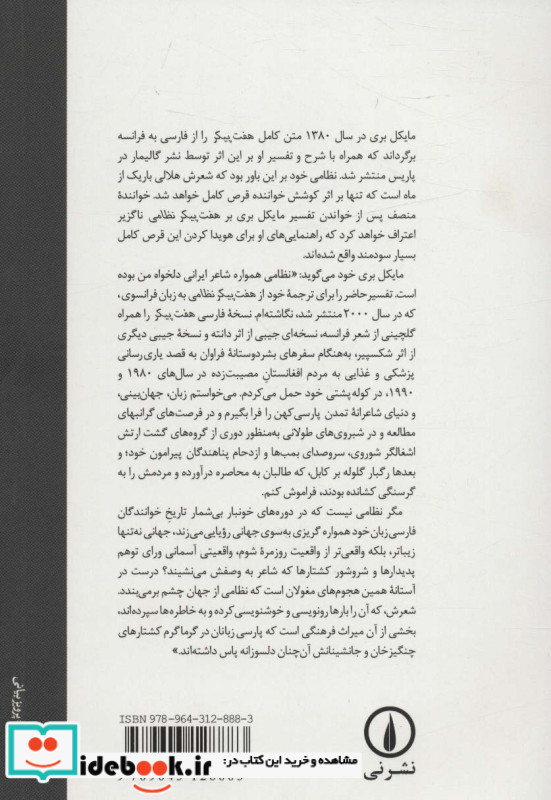 مایکل بری در سال ۱۳۸۰ متن کامل هفت‌پیکر را از فارسی به فرانسه
برگرداند که همراه با شرح و تفسیر او بر این اثر توسط نشر گالیمار در
پاریس منتشر شد. نظامی خود بر این باور بود که شعرش هلالی باریک از
ماه است که تنها بر اثر کوشش خواننده قرص کامل خواهد شد. خوانندهٔ
منصف پس از خواندن تفسیر مایکل بری بر هفت‌پیکر نظامی ناگزیر
اعتراف خواهد کرد که راهنمایی‌های او برای هویدا کردن این قرص کامل
بسیار سودمند واقع شده‌اند.
مایکل بری خود می‌گوید: «نظامی همواره شاعر ایرانی دلخواه من بوده
است. تفسیر حاضر را برای ترجمهٔ خود از هفت‌پیکر نظامی به زبان فرانسوی،
که در سال ۲۰۰۰ منتشر شد، نگاشته‌ام. نسخهٔ فارسی هفت‌پیکر را همراه
گلچینی از شعر فرانسه، نسخه‌ای جیبی از اثر دانته و نسخهٔ جیبی دیگری
از اثر شکسپیر، به‌هنگام سفرهای بشردوستانهٔ فراوان به قصد یاری‌رسانی
پزشکی و غذایی به مردم افغانستانِ مصیبت‌زده در سال‌های ۱۹۸۰ و
۱۹۹۰، در کوله‌پشتی خود حمل می‌کردم. می‌خواستم زبان، جهان‌بینی،
و دنیای شاعرانهٔ تمدن پارسی کهن را فرا بگیرم و در فرصت‌های گرانبهای
مطالعه و در شبروی‌های طولانی به‌منظور دوری از گروه‌های گشت ارتش
اشغالگر شوروی، سروصدای بمب‌ها و ازدحام پناهندگان پیرامون خود؛ و
بعدها رگبار گلوله بر کابل، که طالبان به محاصره درآورده و مردمش را به
گرسنگی کشانده بودند، فراموش کنم.
مگر نظامی نیست که در دوره‌های خونبار بی‌شمار تاریخ خوانندگان
فارسی‌زبان خود همواره گریزی به‌سوی جهانی رؤیایی می‌زند، جهانی نه‌تنها
زیباتر، بلکه واقعی‌تر از واقعیت روزمرهٔ شوم، واقعیتی آسمانی ورای توهم
پدیدارها و شروشور کشتارها که شاعر به وصفش می‌نشیند؟ درست در
آستانهٔ همین هجوم‌های مغولان است که نظامی از جهان چشم برمی‌بندد.
شعرش، که آن را بارها رونویسی و خوشنویسی کرده و به خاطره‌ها سپرده‌اند،
بخشی از آن میراث فرهنگی است که پارسی زبانان در گرماگرم کشتارهای
چنگیزخان و جانشینانش آن‌چنان دلسوزانه پاس داشته‌اند.»
پرویز بیانی
ISBN 978-964-312-888-3
نشر نی
مشاهده و خرید این کتاب در:
idebook.ir